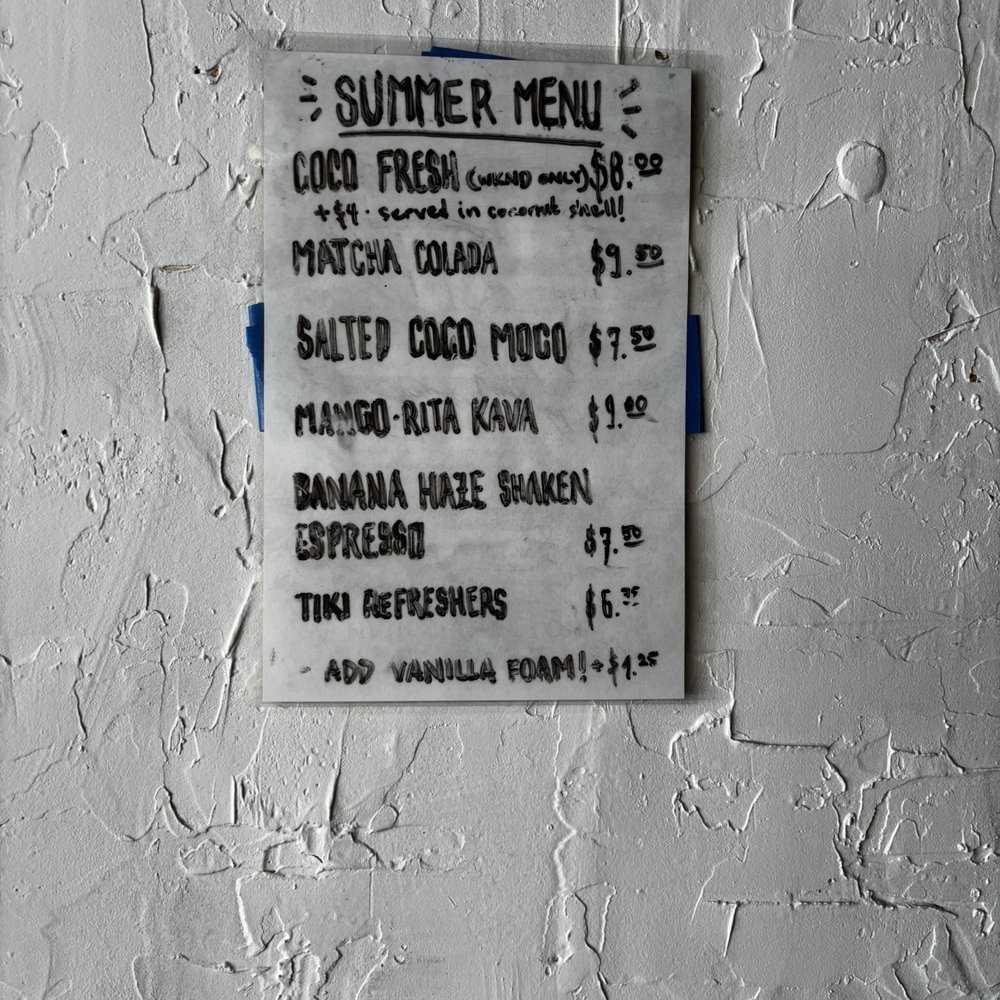 SUMMER MENU
COCO FRESH (WKND ONLY) $8.00
+$4 · served in coconut shell!
MATCHA COLADA $9.50
SALTED COCO MOCO $7.50
MANGO-RITA KAVA $9.00
BANANA HAZE SHAKEN
ESPRESSO $7.50
TIKI REFRESHERS $6.75
- ADD VANILLA FOAM! +$1.25